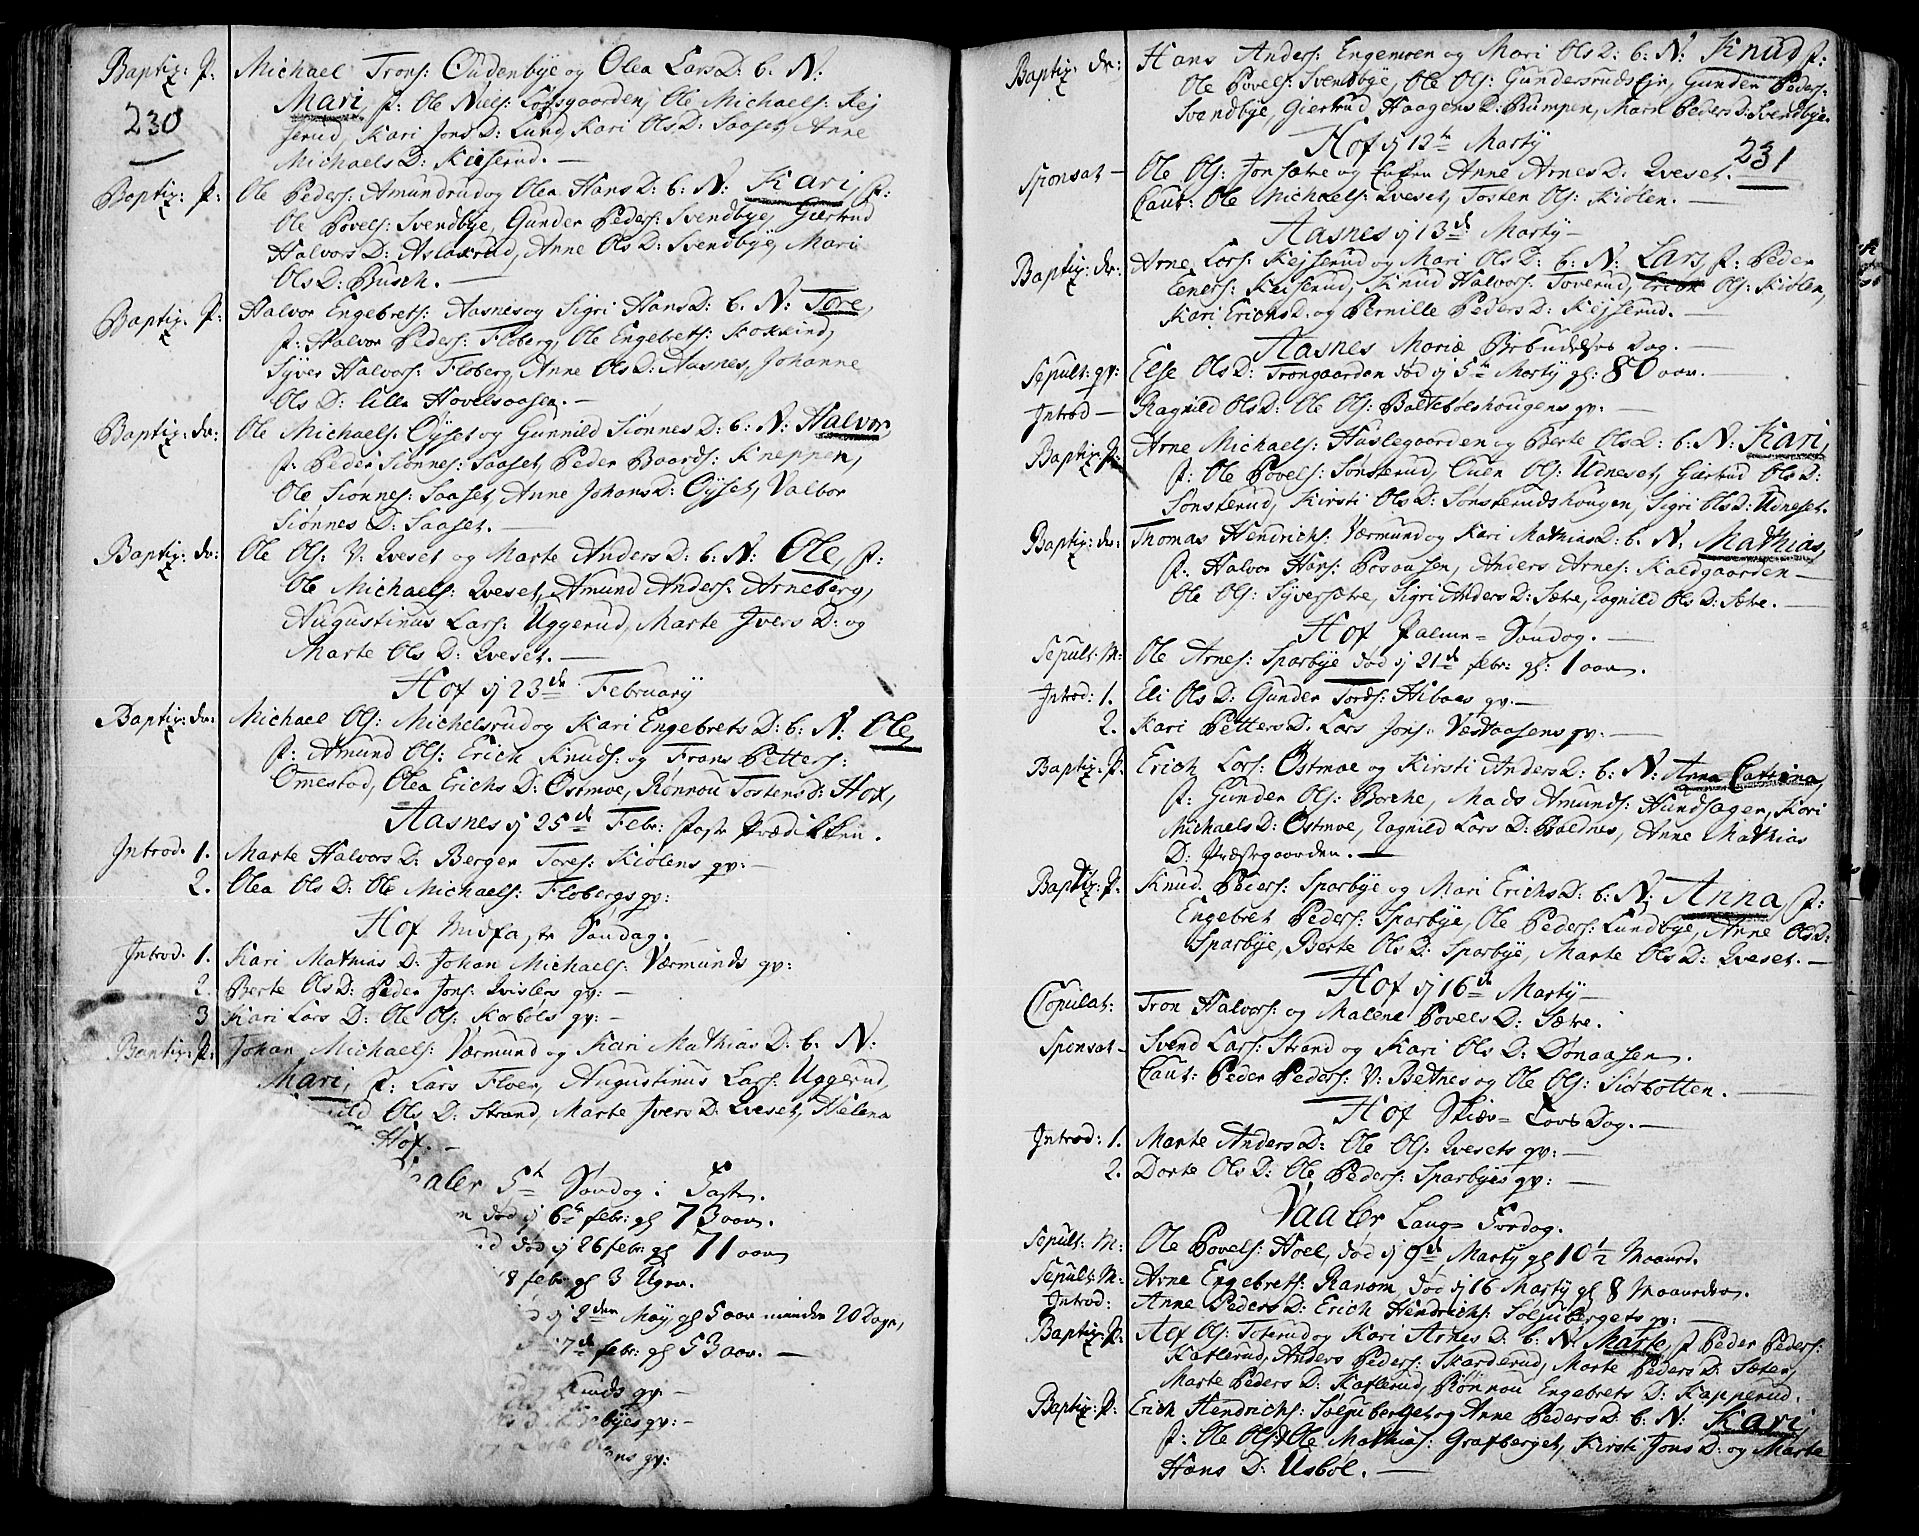 230
Baptiz: P: Michael Trons: Oudenbye og Olea Lars D: b. N:
Mari, P: Ole Niels: Løfsgaarden, Ole Michaels: Kej
serud, Kari Jons D: Lund, Kari Ols D: Saaset, Anne
Michaels D: Keiserud. —
Baptiz: P: Ole Peders: Amundrud og Olea Hans D: b: N: Kari, P:
Ole Povels: Svendbye, Gunder Peders: Svendbye, Giertrud
Halvors D: Aslaxrud, Anne Ols D: Svendbye, Mari
Ols D: Busch. —
Baptiz: P: Halvor Engebrets: Aasnes og Sigri Hans D: b. N: Tore,
P: Halvor Peders: Floberg, Ole Engebrets: Kokkind,
Syver Halvors: Floberg, Anne Ols D: Aasnes, Johanne
Ols D: lille Hovelsaasen. —
Baptiz: dr: Ole Michaels: Øyset og Gunnild Siønnes D: b: N: Halvor,
P: Peder Siønnes: Saaset, Peder Baards: Kneppen,
Ole Siønnes: Saaset, Anne Johans D: Øyset, Valbor
Siønnes D: Saaset. —
Baptiz: dr: Ole Ols: V: Qveset og Marte Anders D: b: N: Ole, P:
Ole Michaels: Qveset, Amund Anders: Arneberg,
Augustinus Lars: Uggerud, Marte Jvers D: og
Marte Ols D: Qveset. —
Hof ij 23de February
Baptiz: dr: Michael Ols: Michelsrud og Kari Engebrets D: b: N: Ole,
P: Amund Ols: Erich Knuds: og Frans Petters:
Omestad, Olea Erichs D: Østmoe, Rønnou Tostens D: Hof,
Aasnes ij 25de Febr: Paste Prædikken.
Introd. 1. Marte Halvors D: Berger Tores: Kiølens qv: —
2. Olea Ols D: Ole Michaels: Flobergs qv:
Hof Midfaste Søndag. —
Introd. 1. Kari Mathias D: Johan Michaels: Værmunds qv:
2. Berte Ols D: Peder Jons: Qvislers qv: —
3 Kari Lars D: Ole Ols: Korbøls qv: —
Baptiz: P: Johan Michaels: Værmund og Kari Mathias D: b: N:
Mari, P: Lars Floer, Augustinus Lars: Uggerud,
Ols D: Strand, Marte Jvers D: Qveset, Helena
Hof. —
aaler 5te Søndag i Faste.
n død ij 6te febr: gl 73 aar.
død ij 26 febr: gl 71 aar
18 febr gl 3 Uger.
ij 2den May, gl 5 aar minder 20 Dage,
17de febr: gl 53 aar. —
Knuds qv: —
byes qv: —
ns qv:
231
Baptiz: dr: Hans Anders: Engemoen og Mari Ols D: b: N: Knud P:
Ole Povels: Svendbye, Ole Ols: Gundersrudsejr, Gunder Peders:
Svendbye, Giertrud Haagens D: Rumpen, Marte Peders D: Svendbye.
Hof ij 12te Marty
Sponsat — Ole Ols: Jonsætre og Enken Anne Arnes D: Qveset.
Caut: Ole Michaels: Qveset, Tosten Ols: Kiølen. —
Aasnes ij 13de Marty —
Baptiz: dr: Arne Lars: Kejserud og Mari Ols D: b: N: Lars, P: Peder
Eeners: Keiserud, Knud Halvors: Toverud, Erich Ols: Kiølen,
Kari Erichs D. og Pernille Peders D: Kejserud. —
Aasnes Mariæ Bebudelses Dag. —
Sepult: qv: Else Ols D: Trongaarden død ij 5te Marty gl: 80 aar. —
Introd — Ragnild Ols D: Ole Ols: Baltebølshougens qv: —
Baptiz: P: Arne Michaels: Haslegaarden og Berte Ols D: b: N: Kari,
P: Ole Povels: Sønsterud, Euen Ols: Udneset, Giertrud Ols D:
Sønsterud, Kirsti Ols D: Sønsterudshougen, Sigri Ols D: Udneset.
Baptiz: dr: Thomas Hendrichs: Værmund og Kari Mathias D: b. N: Mathias,
P: Halvor Hans: Posaasen, Anders Arnes: Kaldgaarden —
Ole Ols: Syversætre, Sigri Anders D: Sætre, Ragnild Ols D: Sætre. —
Hof Palme= Søndag. —
Sepult: M: Ole Arnes: Sparbye død ij 21de febr: gl: 1 aar.
Introd: 1. Eli Ols D: Gunder Tords: Hiboes qv: —
2. Kari Petters D. Lars Jons: Væstaasens qv: —
Baptiz: P: Erich Lars: Østmoe og Kirsti Anders D: b: N: Anna Catrina,
P: Gunder Ols: Borche, Mads Amunds: Hundsager, Kari
Michaels D: Østmoe, Ragnild Lars D: Boldnes, Anne Mathias
D: Præstegaarden. —
Baptiz: P: Knud Peders: Sparbye og Mari Erichs D: b: N: Anna, P:
Engebret Peders: Sparbye, Ole Peders: Lundbye, Anne Ols D:
Sparbye, Berte Ols D: Sparbye, Marte Ols D: Qveset. —
Hof ij 16de Marty —
Copulat: Tron Halvors: og Malene Povels D: Sætre.
Sponsat — Svend Lars: Strand og Kari Ols D: Dønaasen.
Caut: Peder Peders: V: Betnes og Ole Ols: Siørbotten. —
Hof Skiær= Tors Dag. —
Introd: 1. Marte Anders D: Ole Ols: Qvesets qv: —
2. Dorte Ols D: Ole Peders: Sparbyes qv: —
Vaaler Lang= Fredag.
Sepult: M: Ole Povels: Hoel, død ij 9de Marty gl 10½ Maaned.
Sepult: M: Arne Engebrets: Ranom død ij 16 Marty gl 8 Maaneder.
Introd: Anne Peders D: Erich Hendrichs: Soljubergets qv: —
Baptiz: P: Alf Ols: Toterud og Kari Arnes D: b: N: Marte, P Peder Peders:
Katterud, Anders Peders: Skarderud, Marte Peders D: Sæter,
Marte Peders D: Katterud, Rønnou Engebrets D: Kapperud.
Baptiz: P: Erich Hendrichs: Soljuberget og Anne Peders D: b: N: Kari,
P: Ole Ols: & Ole Mathias: Grafberget, Kirsti Jons D: og Marte
Hans D: Usbøl. —